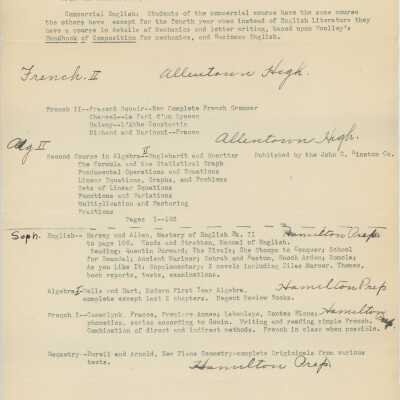 Commercial English: Students of the commercial course have the same course
the others have except for the fourth year when instead of English Literature they
have a course in details of Mechanics and letter writing, based upon Woolley's
Handbook of Composition for mechanics, and Business English.
French II Allentown High.
French II--Fraser and Squair--New Complete French Grammar
Halevy--l'Abbe Constantin
Allentown High.
Alg II
Second Course in Algebra--Englehardt and Published by the John C. Winston Co.
The Formula and the Statistical Graph
Fundamental Operations and Equations
Linear Equations, Graphs, and Problems
Sets of Linear Equations
Functions and Variations
Multiplication and Factoring
Fractions
Pages 1--162
Soph. English-- Harvey and Allen, Mastery of English Bk. II Hamilton Prep
to page 106. Woods and Stratton, Manual of English.
Reading: Quentin Durward; The Rivals; She Stoops to Conquer; School
for Scandal; Ancient Mariner; Sohrab and Rustum, Enoch Arden, Comus;
As You Like It; Supplementary: 2 novels including Silas Marner. Themes,
book reports, tests, examinations.
Hamilton Prep
Algebra I--Wells and Hart, Modern First Year Algebra.
complete except last 2 chapters. Regent Review Books.
French I-- France, Hamilton Prep.
phonetics, series according to Gouin. Writing and reading simple French.
Combination of direct and indirect methods. French in class when possible.
Geometry--Durell and Arnold, New Plane Geometry-complete Originals from various
texts.
Hamilton Prep.